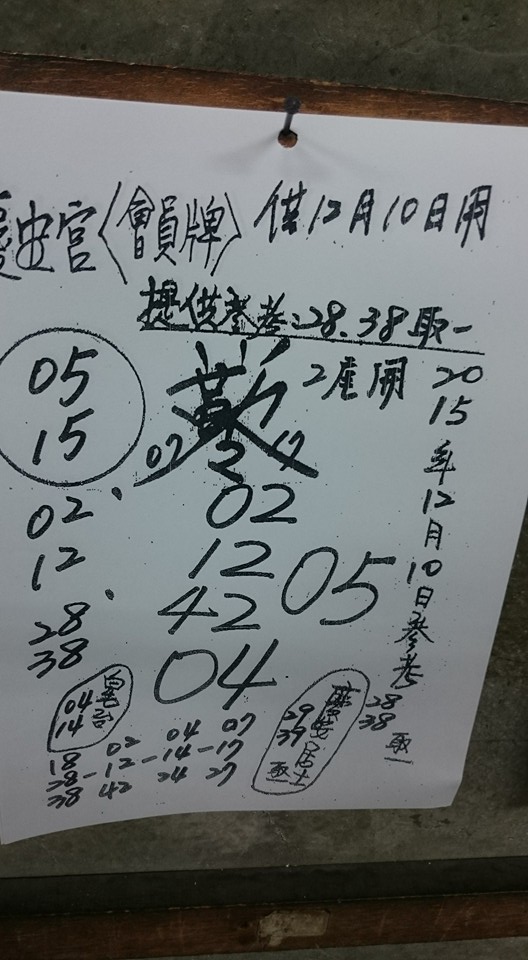 宮〈會員牌〉供12月10日用
提供參考:28.38取一
2座開
05
15
02
12
28
38
07 2 17
02
12
42
04
05
2015年12月10日參考
28
38
取一
04
14
29
39
居士
取一
18 02 04 07
28-12-14-17
38 42 24 27